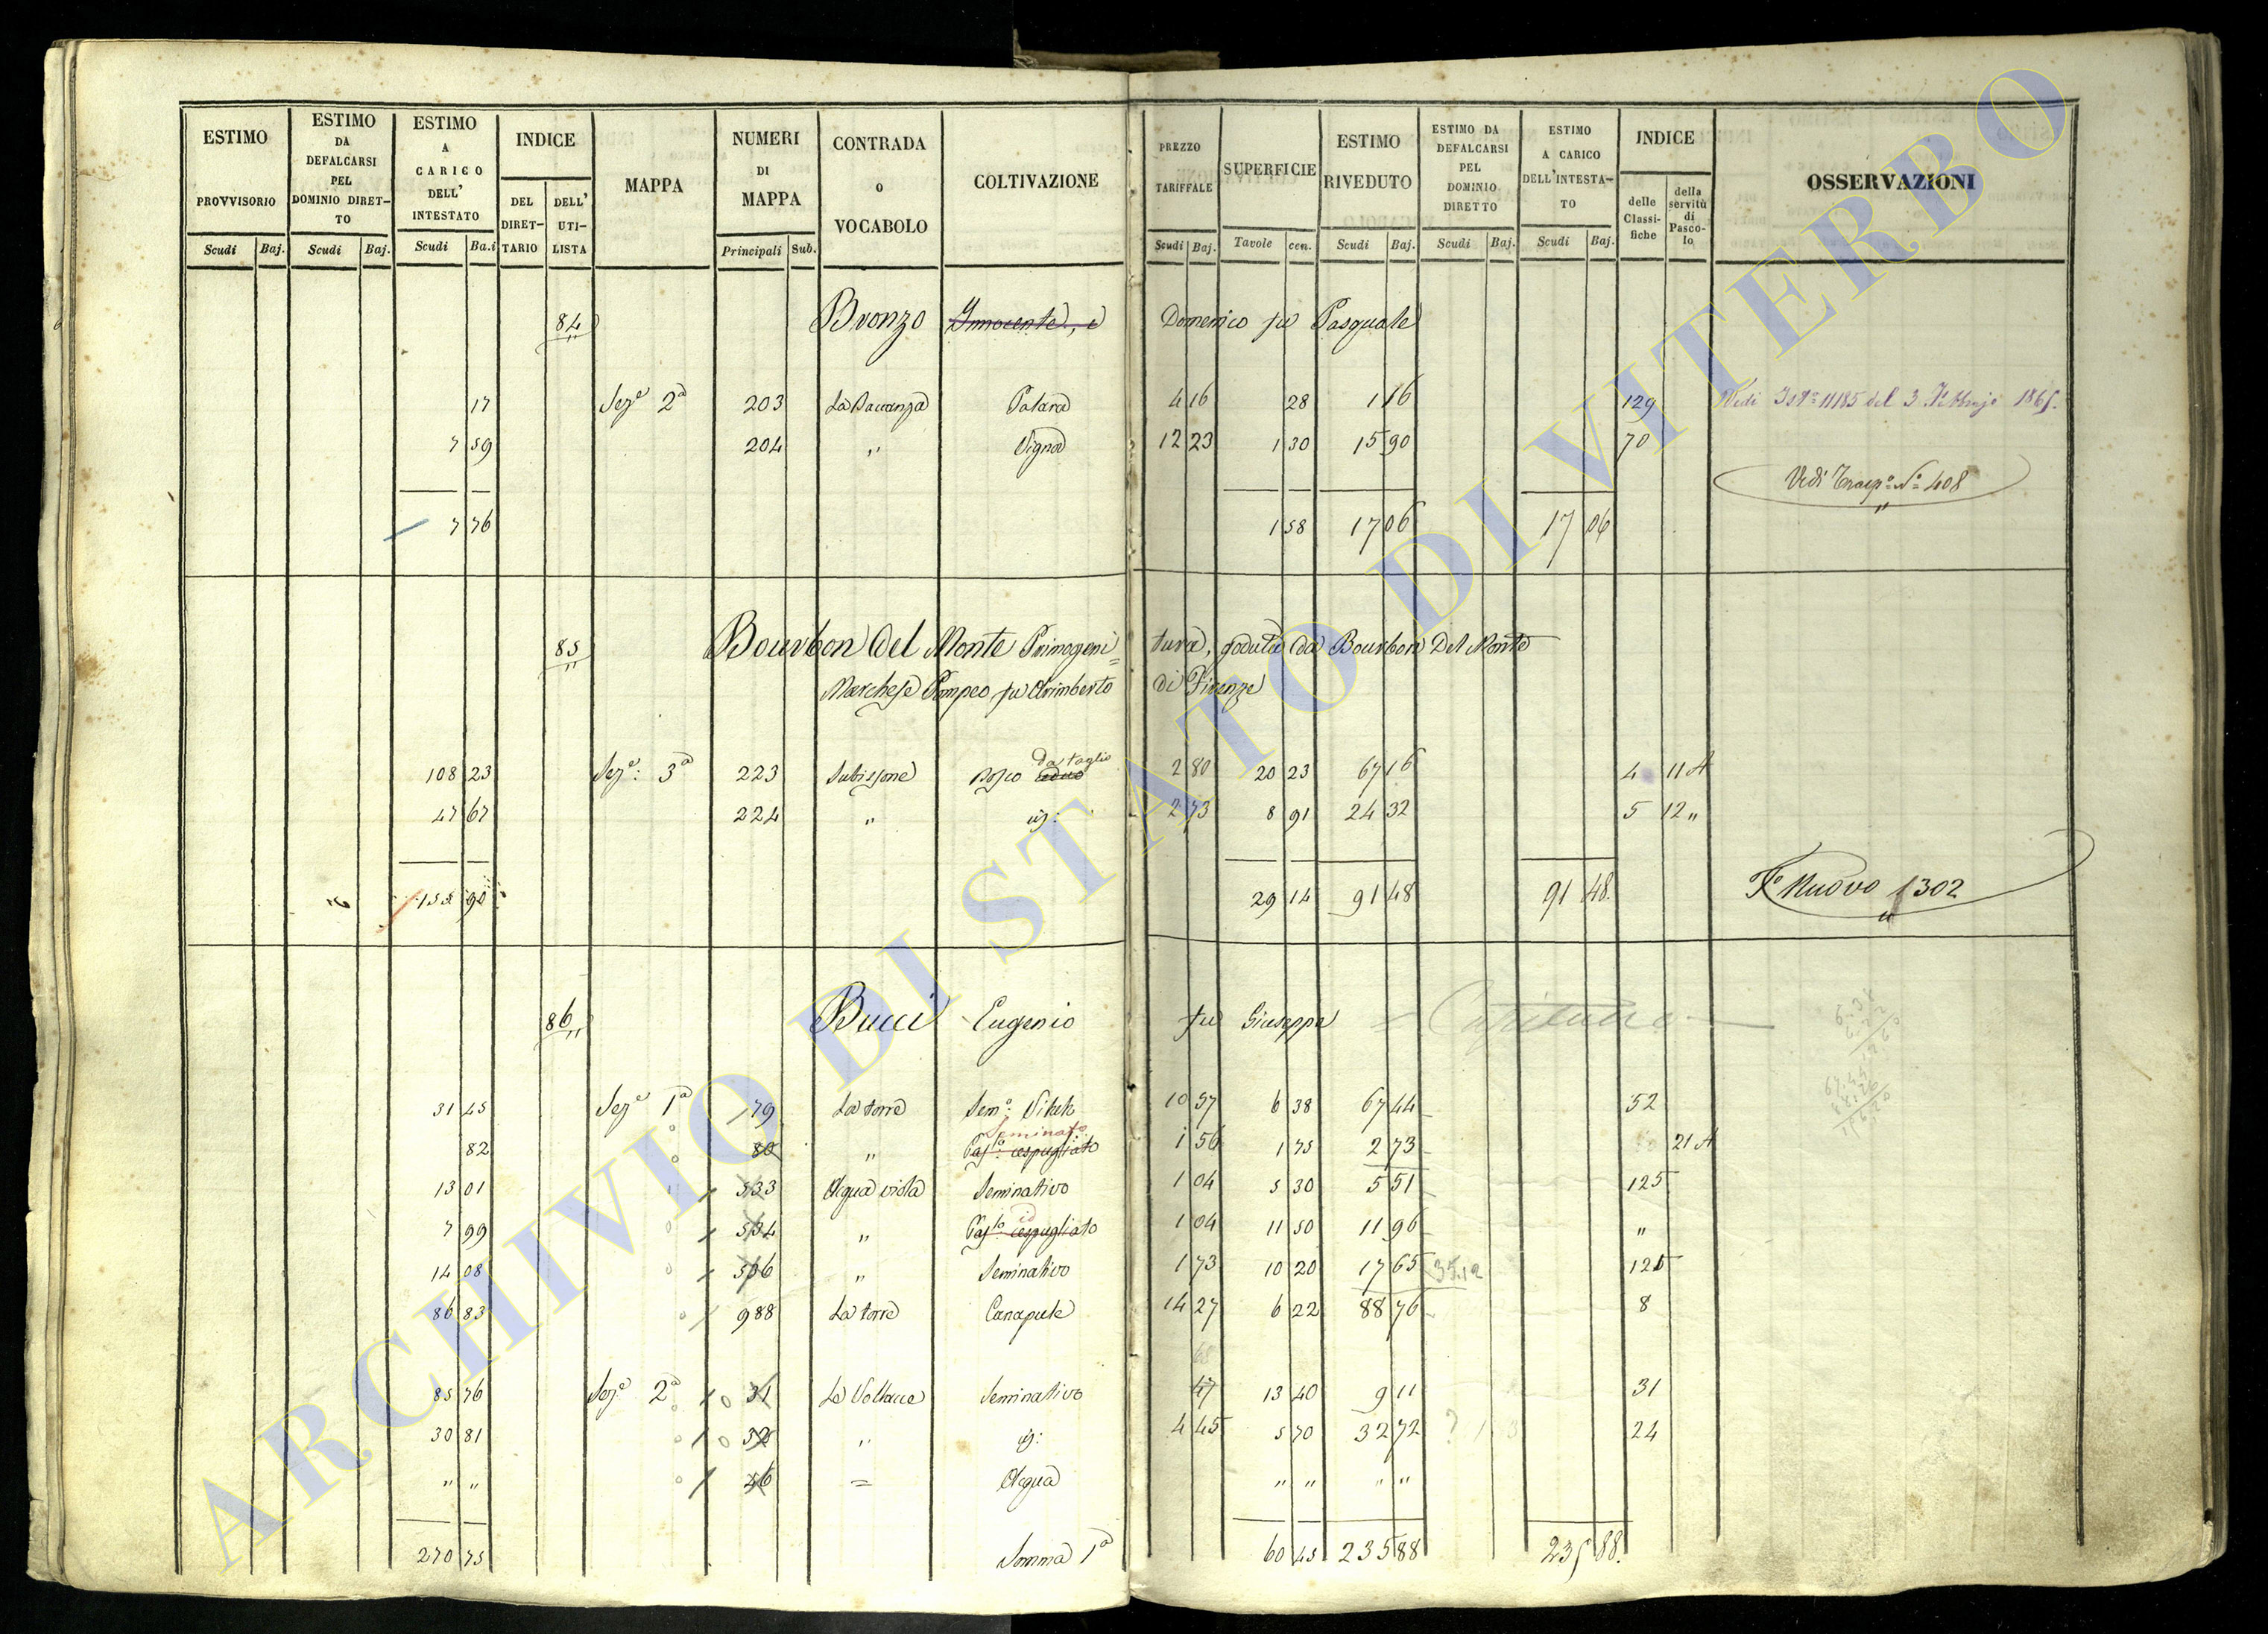 ESTIMO PROVVISORIO Scudi Baj.
ESTIMO DA DEFALCARSI PEL DOMINIO DIRET-TO Scudi Baj.
ESTIMO A CARICO DELL' INTESTATO Scudi Ba.i
INDICE DEL DIRET-TARIO DELL' UTI-LISTA
MAPPA
NUMERI DI MAPPA Principali Sub.
CONTRADA O VOCABOLO
COLTIVAZIONE
PREZZO TARIFFALE Scudi Baj.
SUPERFICIE Tavole cen.
ESTIMO RIVEDUTO Scudi Baj.
ESTIMO DA DEFALCARSI PEL DOMINIO DIRETTO Scudi Baj.
ESTIMO A CARICO DELL'INTESTA-TO Scudi Baj.
INDICE delle Classi-fiche della servitù di Pasco-lo
OSSERVAZIONI
84 Bronzo Innocente, e Domenico fu Pasquale
17 Sez.e 2a 203 Patara 4 16 28 1 16 129 Vedi 11185 del 3 1865.
7 59 204 " Vigna 12 23 1 30 15 90 70
Vedi Trasp.o N.o 408
7 76 1 58 17 06 17 06
85 Bourbon Del Monte Primogeni= tura, goduta da Bourbon Del Monte
Marchese Pompeo fu di Firenze
108 23 Sez.e: 3a 223 Subissone Bosco da taglio 2 80 20 23 67 16 4 11 A
47 67 224 " id: 2 73 8 91 24 32 5 12 "
155 90 29 14 91 48 91 48. Nuovo 1302
86 Bucci Eugenio fu Giuseppe
31 45 Sez.e 1a 79 La torre Sem.o: Vitat.o 10 57 6 38 67 44 52
82 80 " Seminato Pas.o cespugliato 1 56 1 75 2 73 21 A
13 01 533 Acqua vista Seminativo 1 04 5 30 5 51 125
7 99 534 " Pas.o cespugliato id 1 04 11 50 11 96 "
14 08 536 " Seminativo 1 73 10 20 17 65 35.12 121
86 83 988 La torre Canapule 14 27 6 22 88 76 8
68
85 76 Sez.e 2a 31 Seminativo 47 13 40 9 11 31
30 81 32 " id: 4 45 5 70 32 72 ? 24
" " 46 = Acqua " " " "
270 75 Somma 1a 60 45 235 88 235 88.
ARCHIVIO DI STATO DI VITERBO